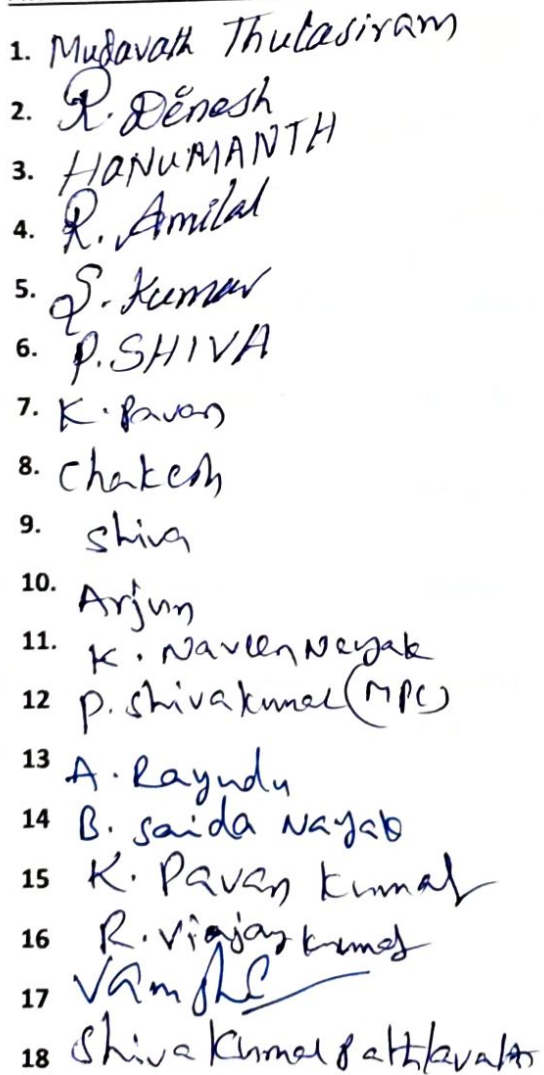 1. Mudavath Thulasiram
2. R. Dinesh
3. HANUMANTH
4. R. Amilal
5. S. Kumar
6. P. SHIVA
7. K. Pavan
8. Chakesh
9. Shiva
10. Arjun
11. K. Naveen Nayak
12 P. Shivakumar (MPC)
13 A. Rayudu
14 B. Saida Nayak
15 K. Pavan Kumar
16 R. Viajay kumar
17 Vamshi
18 Shiva Kumar Pathlavath